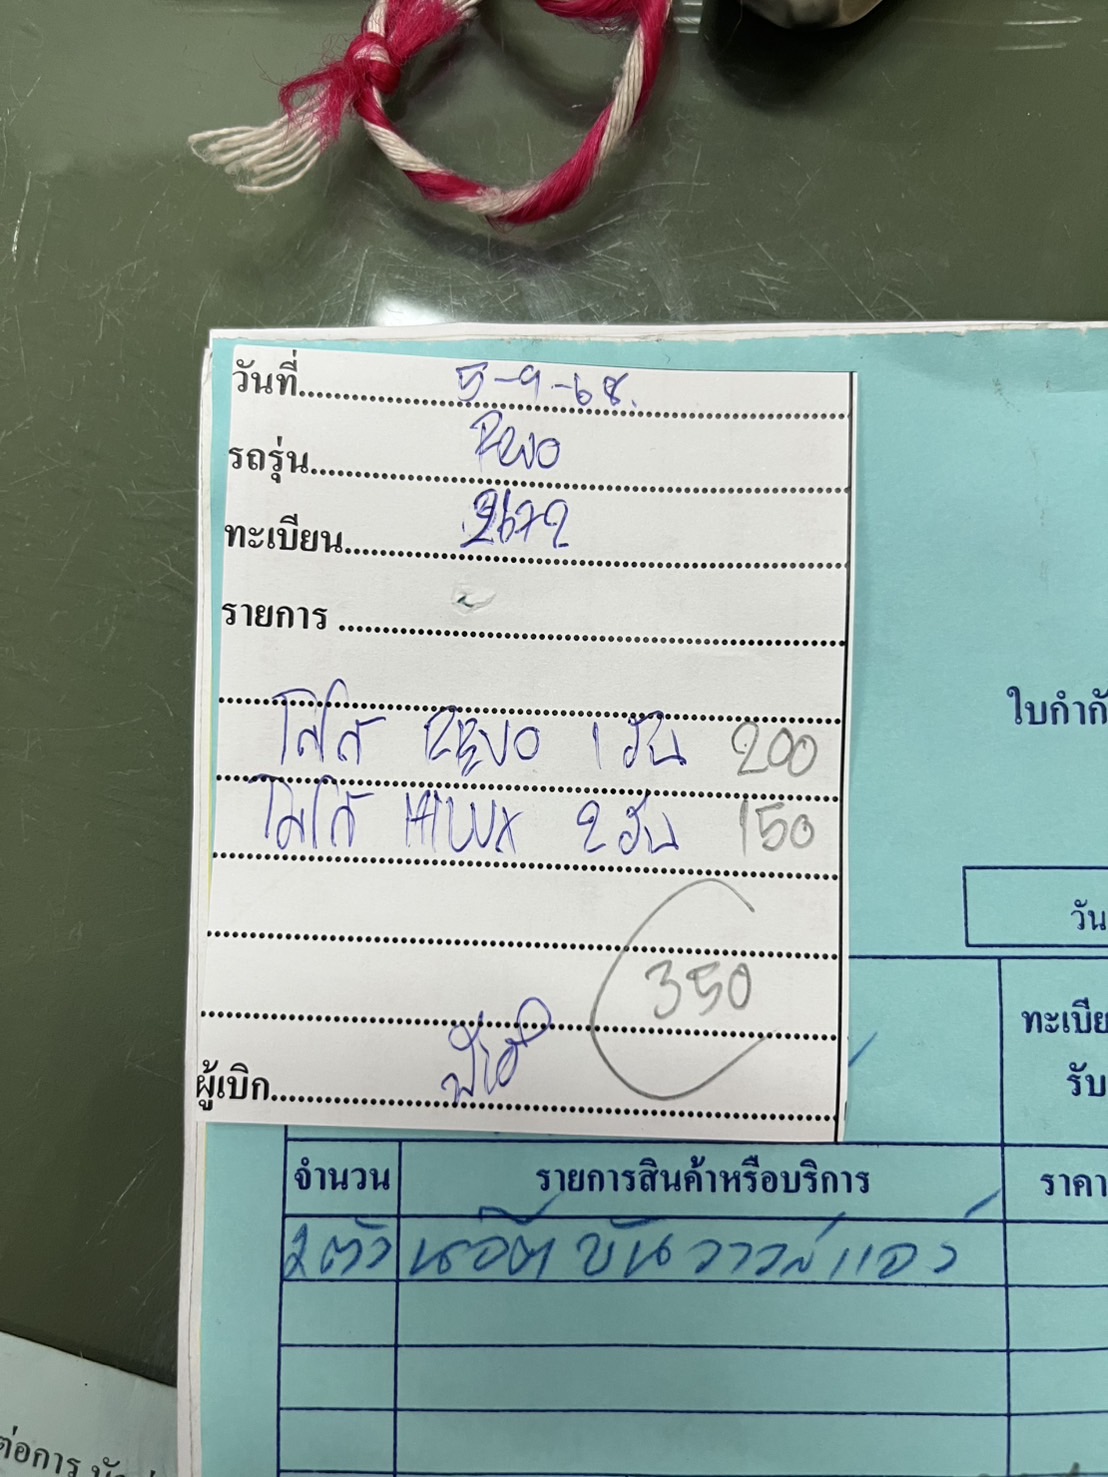 วันที่ 5-9-68.
รถรุ่น Revo
ทะเบียน 2672
รายการ
โลโก้ REVO 1 อัน 200
โลโก้ HILUX 2 อัน 150
350
ผู้เบิก
ใบกำกั
วัน
ทะเบีย
รับ
จำนวน รายการสินค้าหรือบริการ ราคา
2 ตัว น๊อต ขัน วาวล์
ต่อการ